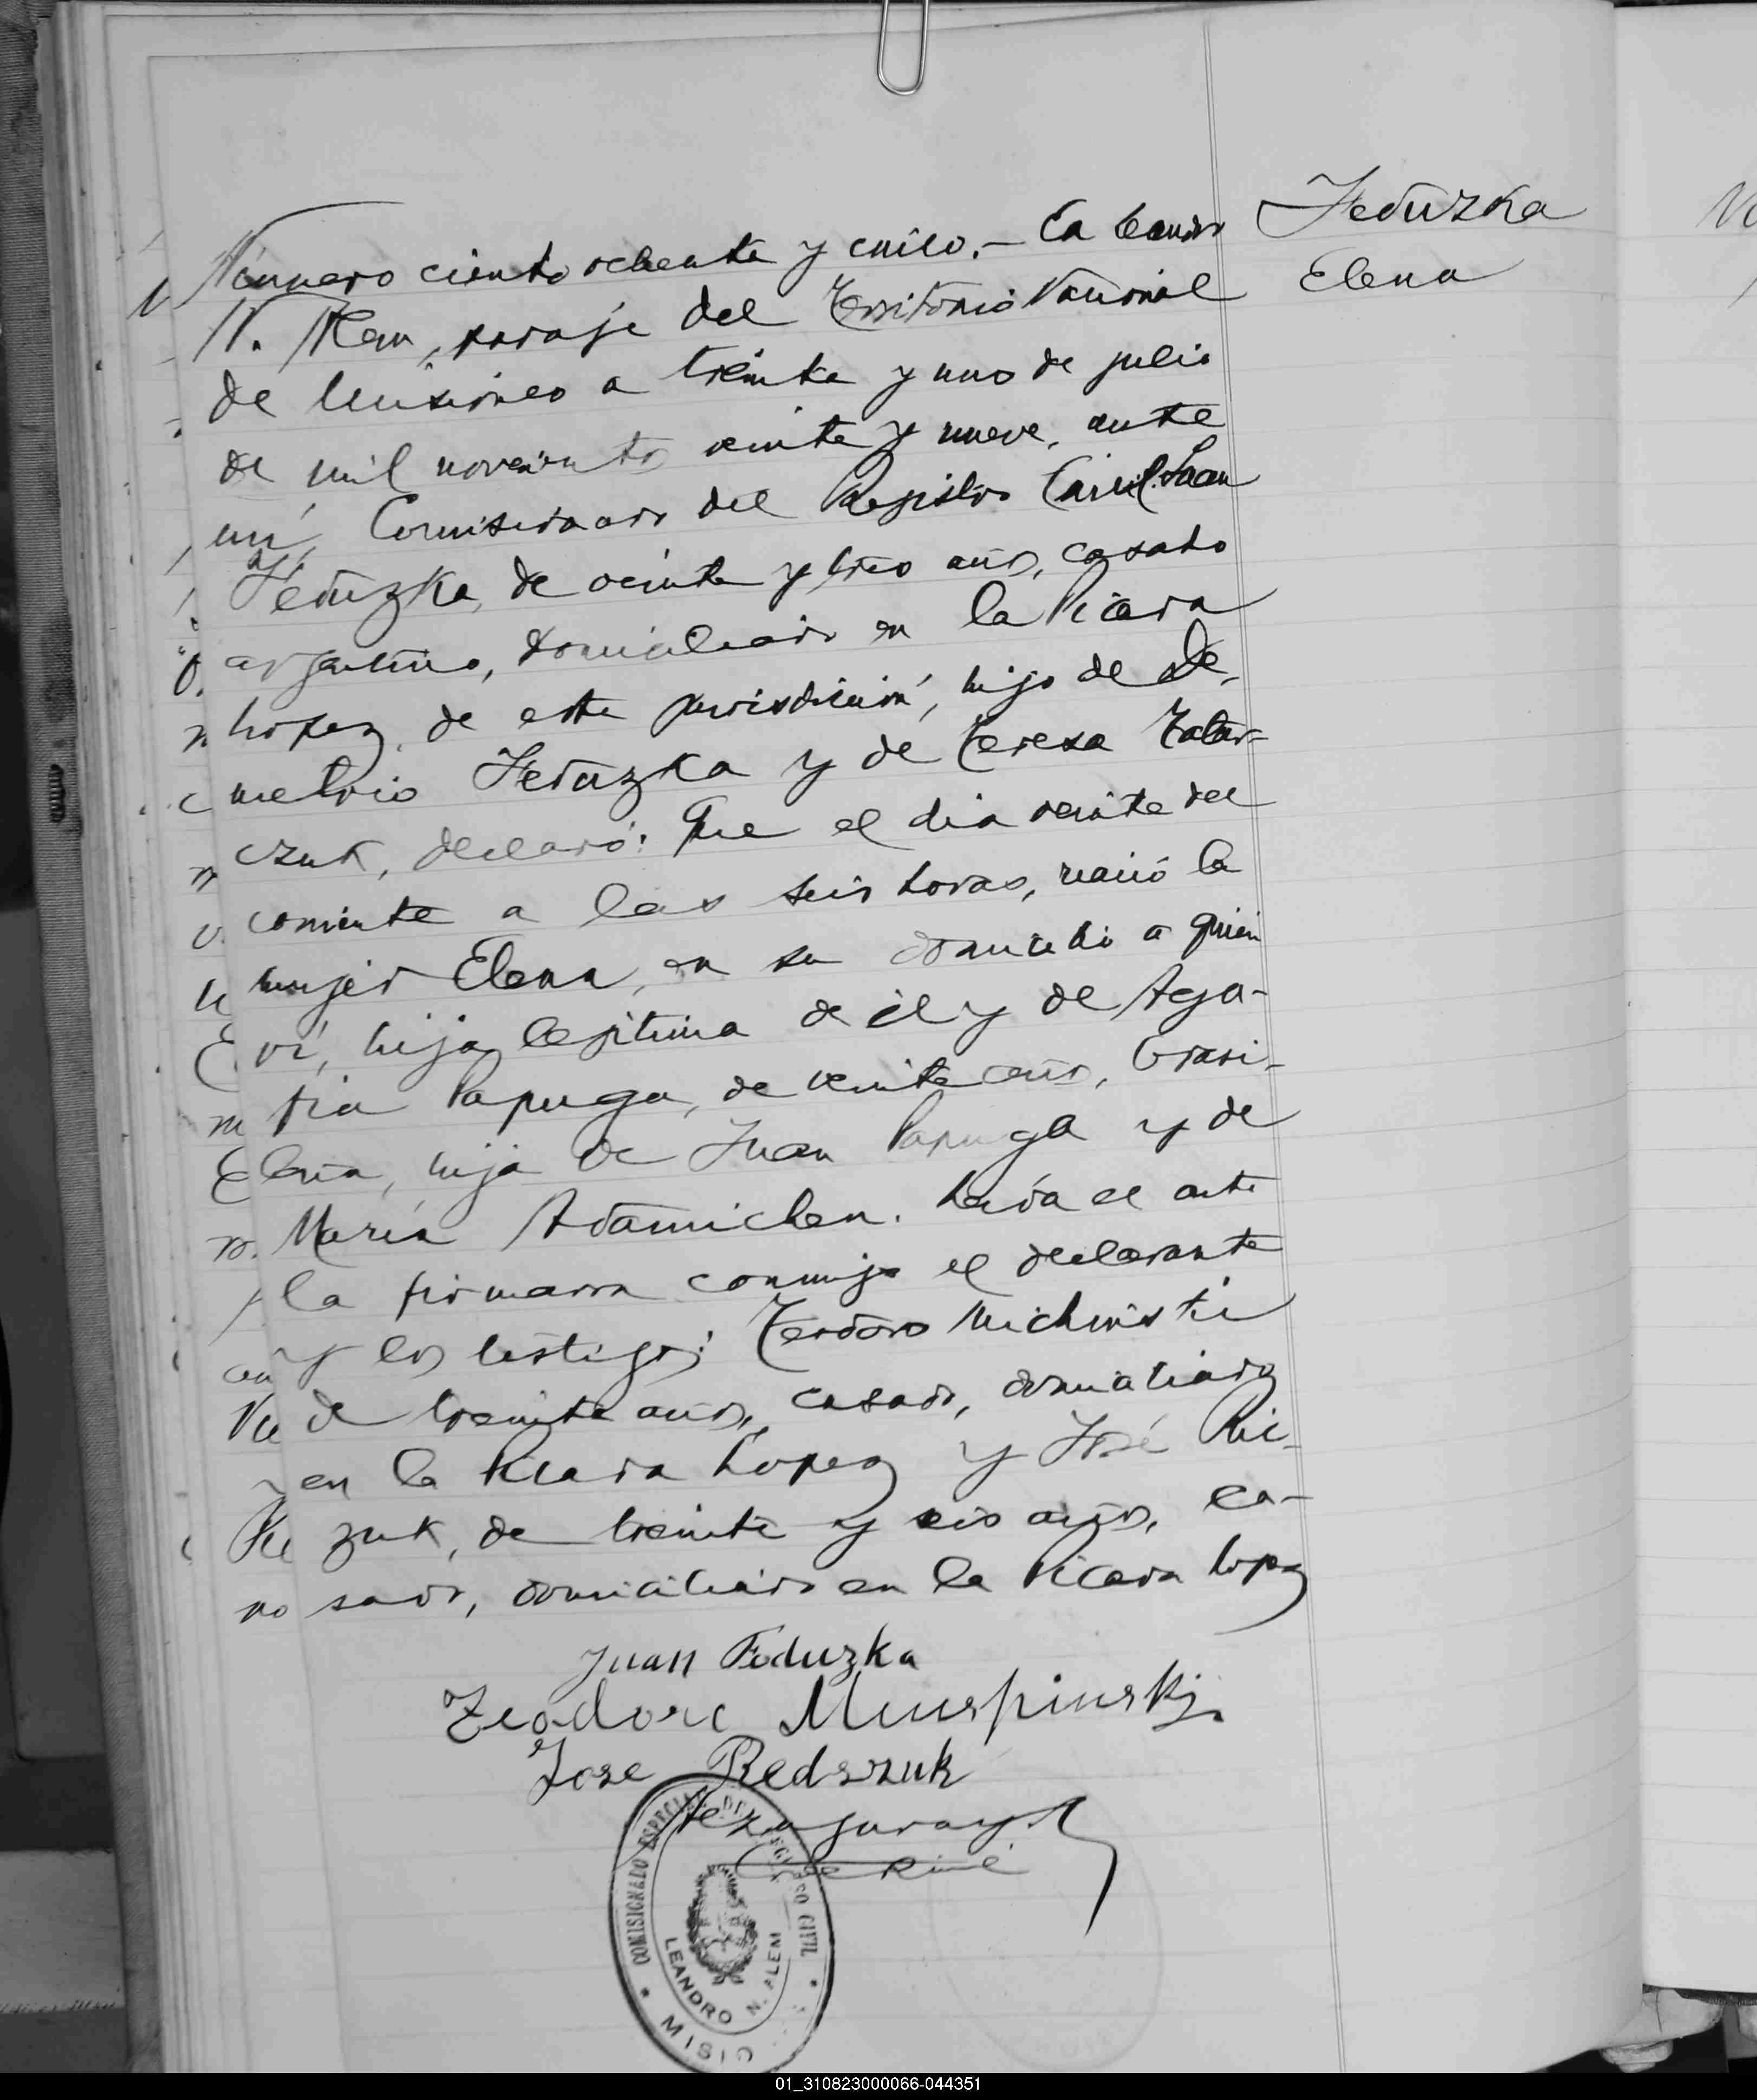 Feduzka
Elena
Número ciento ochenta y cinco.- En Leandro
N. Alem, paraje del Territorio Nacional
de Misiones a treinta y uno de julio
de mil novecientos veinte y nueve, ante
mí, Comisionado del Registro Civil Juan
Feduzka, de veinte y tres años, casado
argentino, domiciliado en la Picada
Lopez, de esta jurisdicción, hijo de De-
metrio Feduzka y de Teresa Tatar-
czuk, declaró: Que el dia veinte del
corriente a las seis horas, nació la
mujer Elena, en su domicilio a quien
ví, hija legitima de él y de Aga-
fia Papuga, de veinte años, brasi-
leña, hija de Juan Papuga y de
María Adamichen. Leída el acta
la firmaron conmigo el declarante
y los testigos: Teodoro
de treinta años, casado, domiciliado
en la Picada Lopez y José Rie-
zuk, de treinta y seis años, ca-
sado, domiciliado en la Picada Lopez
Juan Feduzka
Teodoro
Jose Redszuk
COMISIONADO ESPECIAL DEL REGISTRO CIVIL
LEANDRO N. ALEM
MISIO
01_310823000066-044351